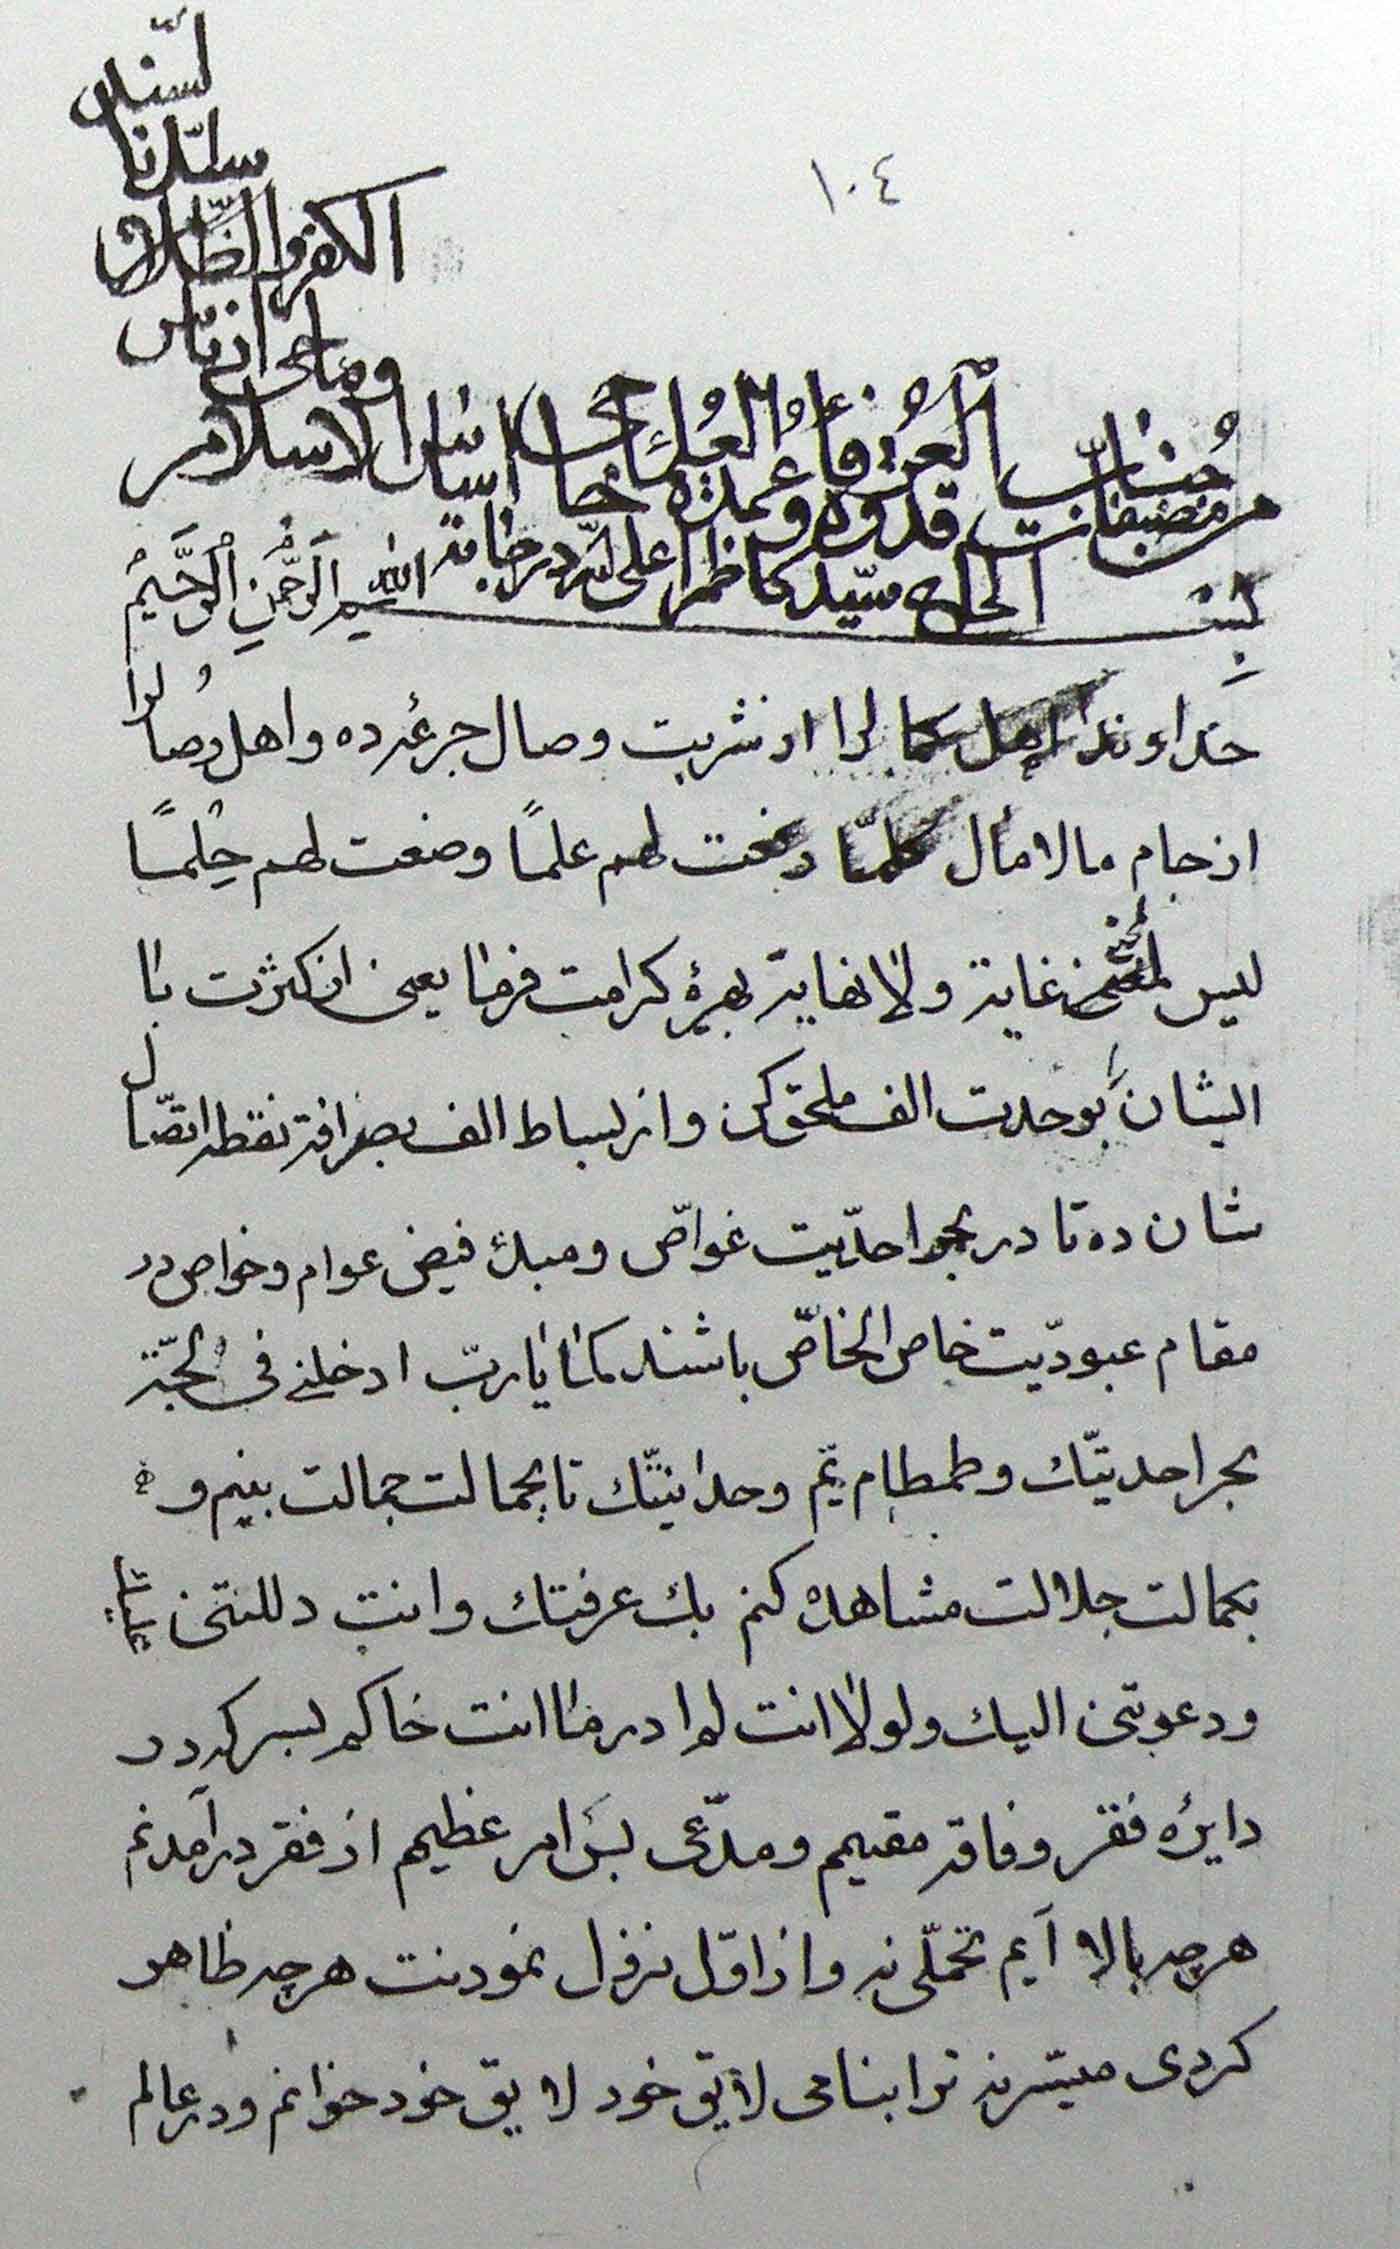 ١٠٤
لسندن
سیدنا
الکفر والظلام
وماحی
اساس الاسلام
من مصنفات جناب قدوة العرفاء وعمدة العلماء
الحاج سید کاظم اعلی الله درجاته
بسم الله الرحمن الرحیم
خداوندا اهل کمال را از شربت وصال جرعه ده واهل وصال را
از جام مالامال کلما رفعت لهم علمًا وضعت لهم حلمًا
لیس لمحبتی غایة ولا نهایة بهرۀ کرامت فرما یعنی از کثرت با
ایشان را بوحدت الف ملحق کن واز بساط الف بصرافة نقطه اتصال
شان ده تا در بحر احدیت غواص ومبدء فیض عوام وخواص ودر
مقام عبودیت خاص الخاص باشند یارب ادخلنی فی لجة
بحر احدیتک وطمطام یم وحدانیتک تا بجمالت جمالت بینم و
بکمالت جلالت مشاهده کنم بک عرفتک وانت دللتنی علیک
ودعوتنی الیک ولولا انت لم ادر ما انت خاکم بسر که در
دایرۀ فقر وفاقه مقیم ومدعی بس امر عظیم از فقر درآمدنم
هرچه بالا آیم تحملی نه واز اول نزول نمودنت هرچه ظاهر
کردی میسر نه ترا بنامی لایق خود لایق خود خوانم ودر عالم